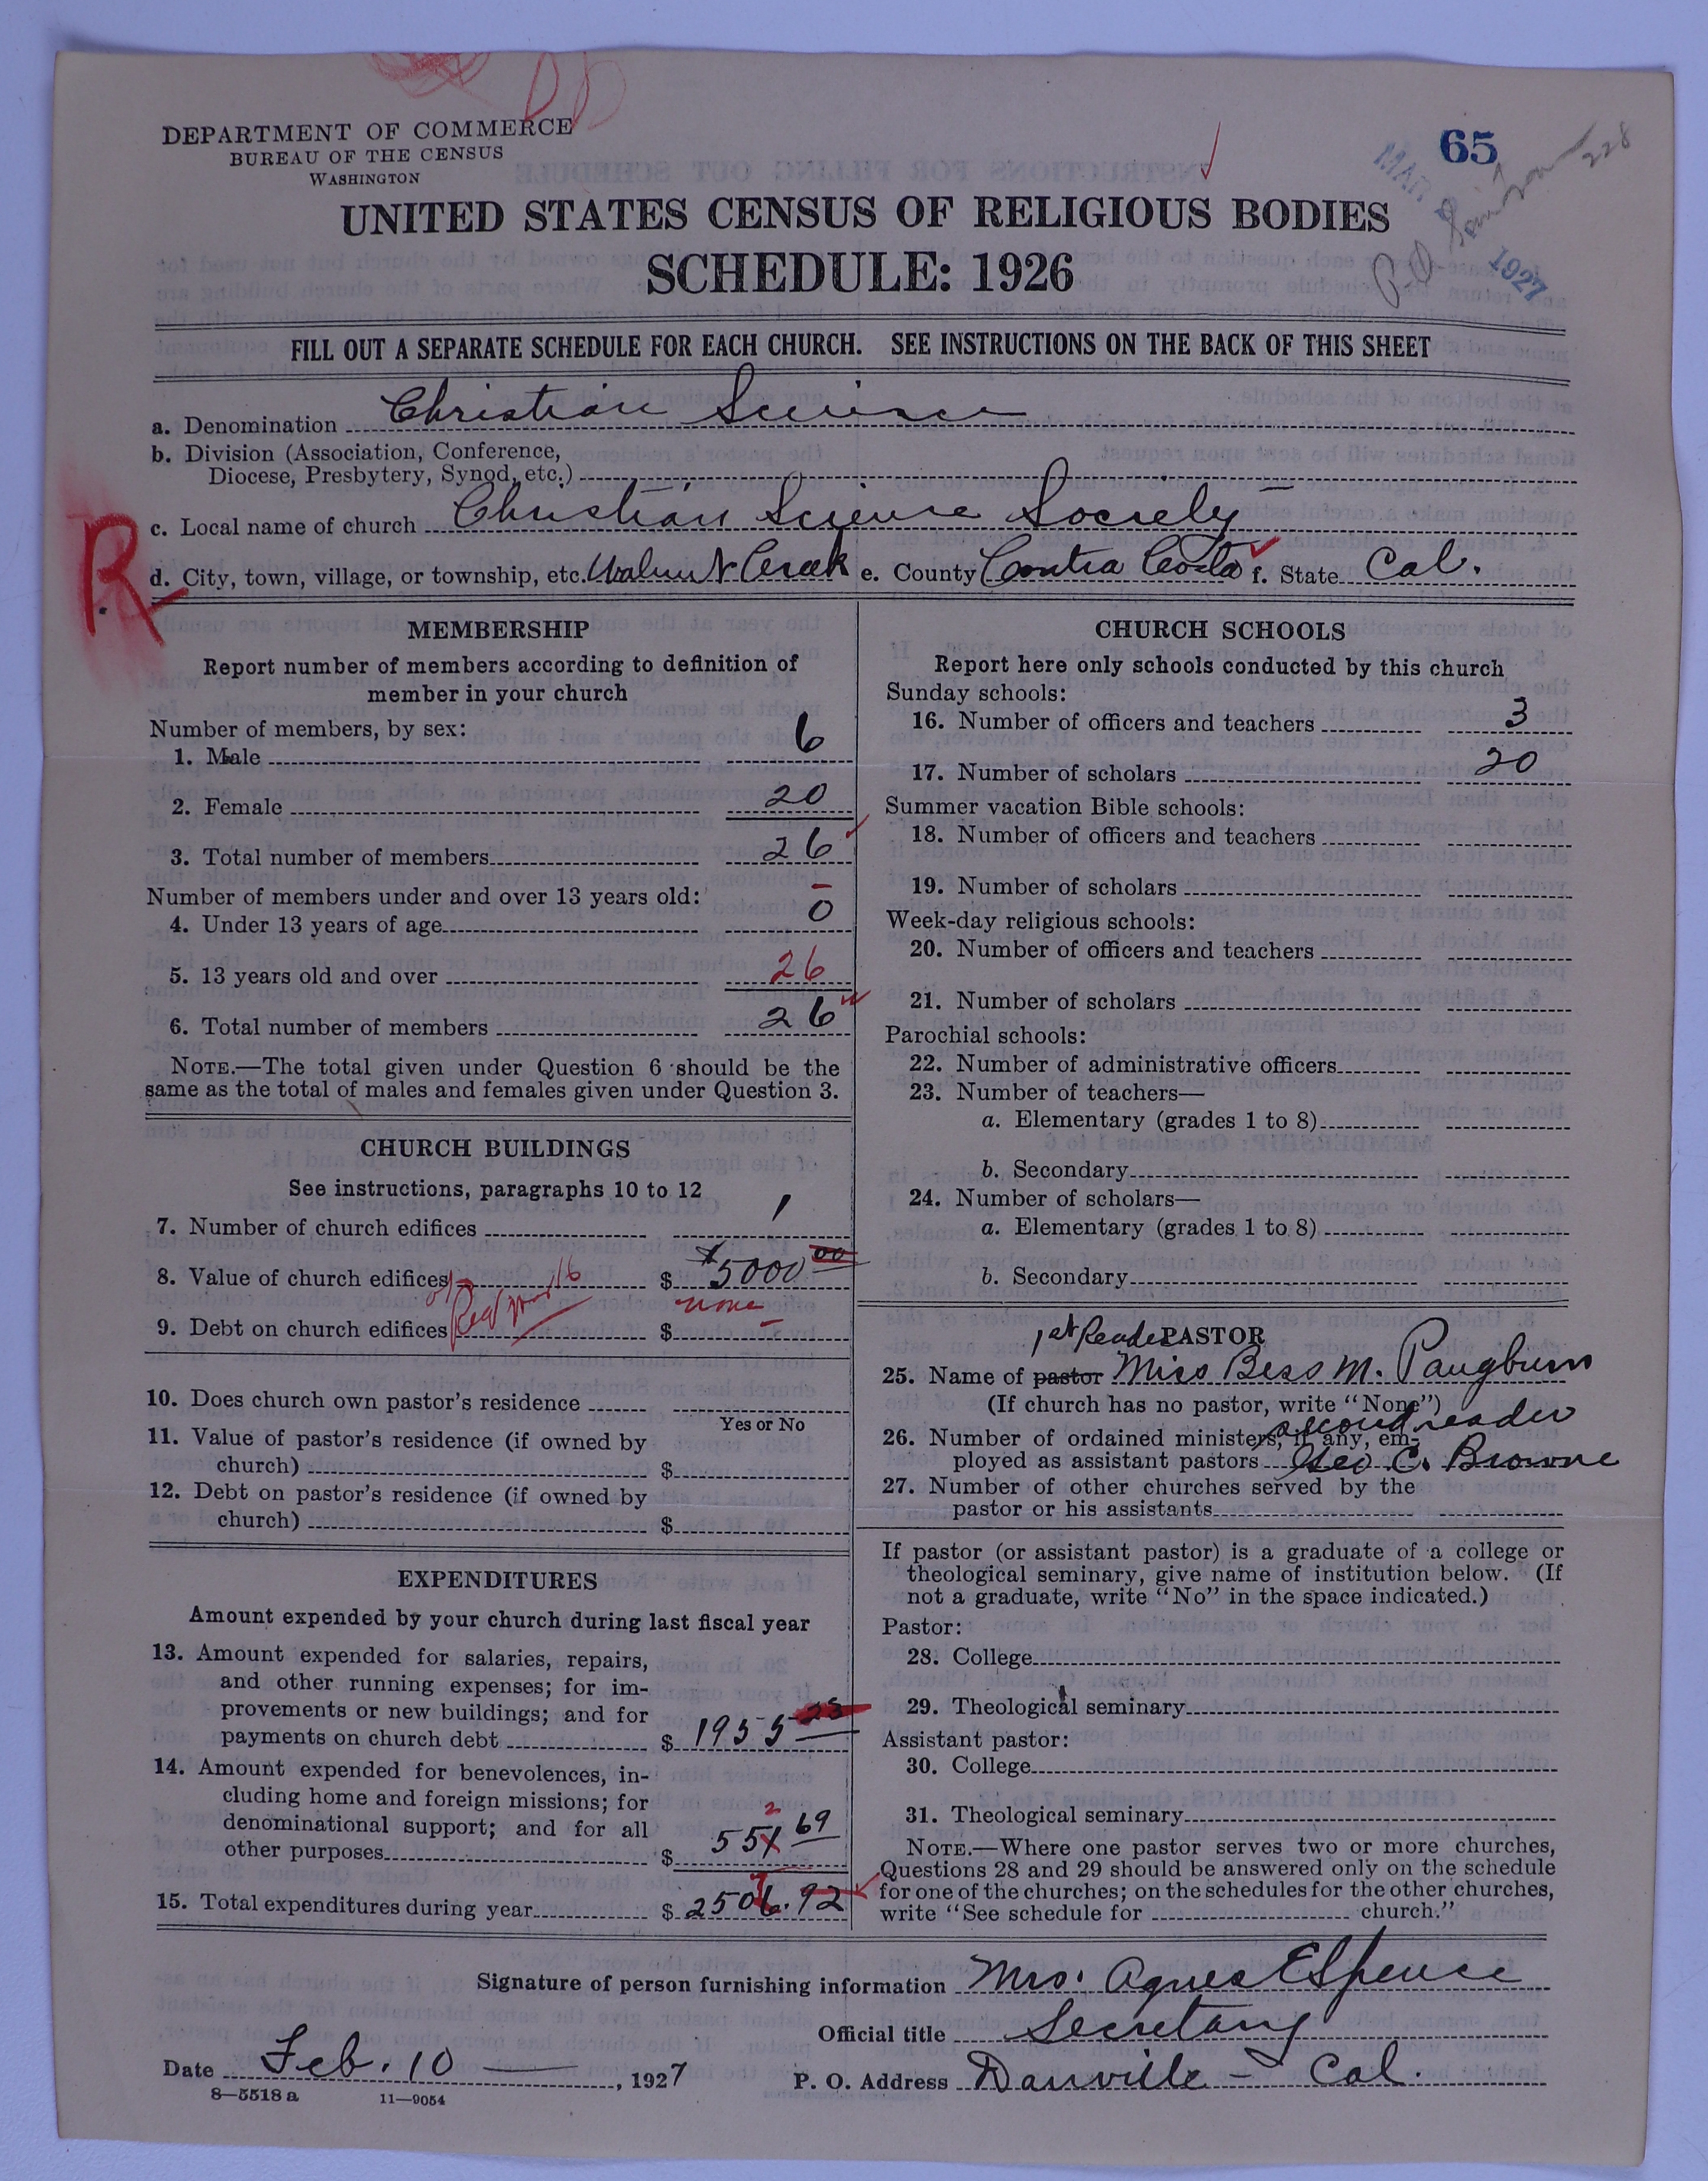 65
228
MAR 1927
DEPARTMENT OF COMMERCE
BUREAU OF THE CENSUS
WASHINGTON
UNITED STATES CENSUS OF RELIGIOUS BODIES
SCHEDULE: 1926
FILL OUT A SEPARATE SCHEDULE FOR EACH CHURCH. SEE INSTRUCTIONS ON THE BACK OF THIS SHEET
a. Denomination Christian Science
b. Division (Association, Conference,
Diocese, Presbytery, Synod, etc.)
c. Local name of church Christian Science Society
R
d. City, town, village, or township, etc. Walnut Creek e. County Contra Costa f. State Cal.
MEMBERSHIP
Report number of members according to definition of
member in your church
Number of members, by sex:
1. Male 6
2. Female 20
3. Total number of members 26
Number of members under and over 13 years old:
4. Under 13 years of age 0
5. 13 years old and over 26
6. Total number of members 26
NOTE.—The total given under Question 6 should be the
same as the total of males and females given under Question 3.
CHURCH BUILDINGS
See instructions, paragraphs 10 to 12
7. Number of church edifices 1
8. Value of church edifices $ $5000 00
9. Debt on church edifices $ none
10. Does church own pastor's residence
Yes or No
11. Value of pastor's residence (if owned by
church) $
12. Debt on pastor's residence (if owned by
church) $
EXPENDITURES
Amount expended by your church during last fiscal year
13. Amount expended for salaries, repairs,
and other running expenses; for im-
provements or new buildings; and for
payments on church debt $ 1955 23
14. Amount expended for benevolences, in-
cluding home and foreign missions; for
denominational support; and for all
2
other purposes $ 551 69
7
15. Total expenditures during year $ 2506.92
CHURCH SCHOOLS
Report here only schools conducted by this church
Sunday schools:
16. Number of officers and teachers 3
17. Number of scholars 20
Summer vacation Bible schools:
18. Number of officers and teachers
19. Number of scholars
Week-day religious schools:
20. Number of officers and teachers
21. Number of scholars
Parochial schools:
22. Number of administrative officers
23. Number of teachers—
a. Elementary (grades 1 to 8)
b. Secondary
24. Number of scholars—
a. Elementary (grades 1 to 8)
b. Secondary
1st Reader PASTOR
25. Name of pastor Miss Bess M. Pangburn
(If church has no pastor, write "None")
second reader
26. Number of ordained ministers, if any, em-
ployed as assistant pastors Geo C. Browne
27. Number of other churches served by the
pastor or his assistants
If pastor (or assistant pastor) is a graduate of a college or
theological seminary, give name of institution below. (If
not a graduate, write "No" in the space indicated.)
Pastor:
28. College
29. Theological seminary
Assistant pastor:
30. College
31. Theological seminary
NOTE.—Where one pastor serves two or more churches,
Questions 28 and 29 should be answered only on the schedule
for one of the churches; on the schedules for the other churches,
write "See schedule for church."
Signature of person furnishing information Mrs. Agnes E Spence
Official title Secretary
Date Feb. 10 , 1927
P. O. Address Danville - Cal.
8—5518 a 11—9054